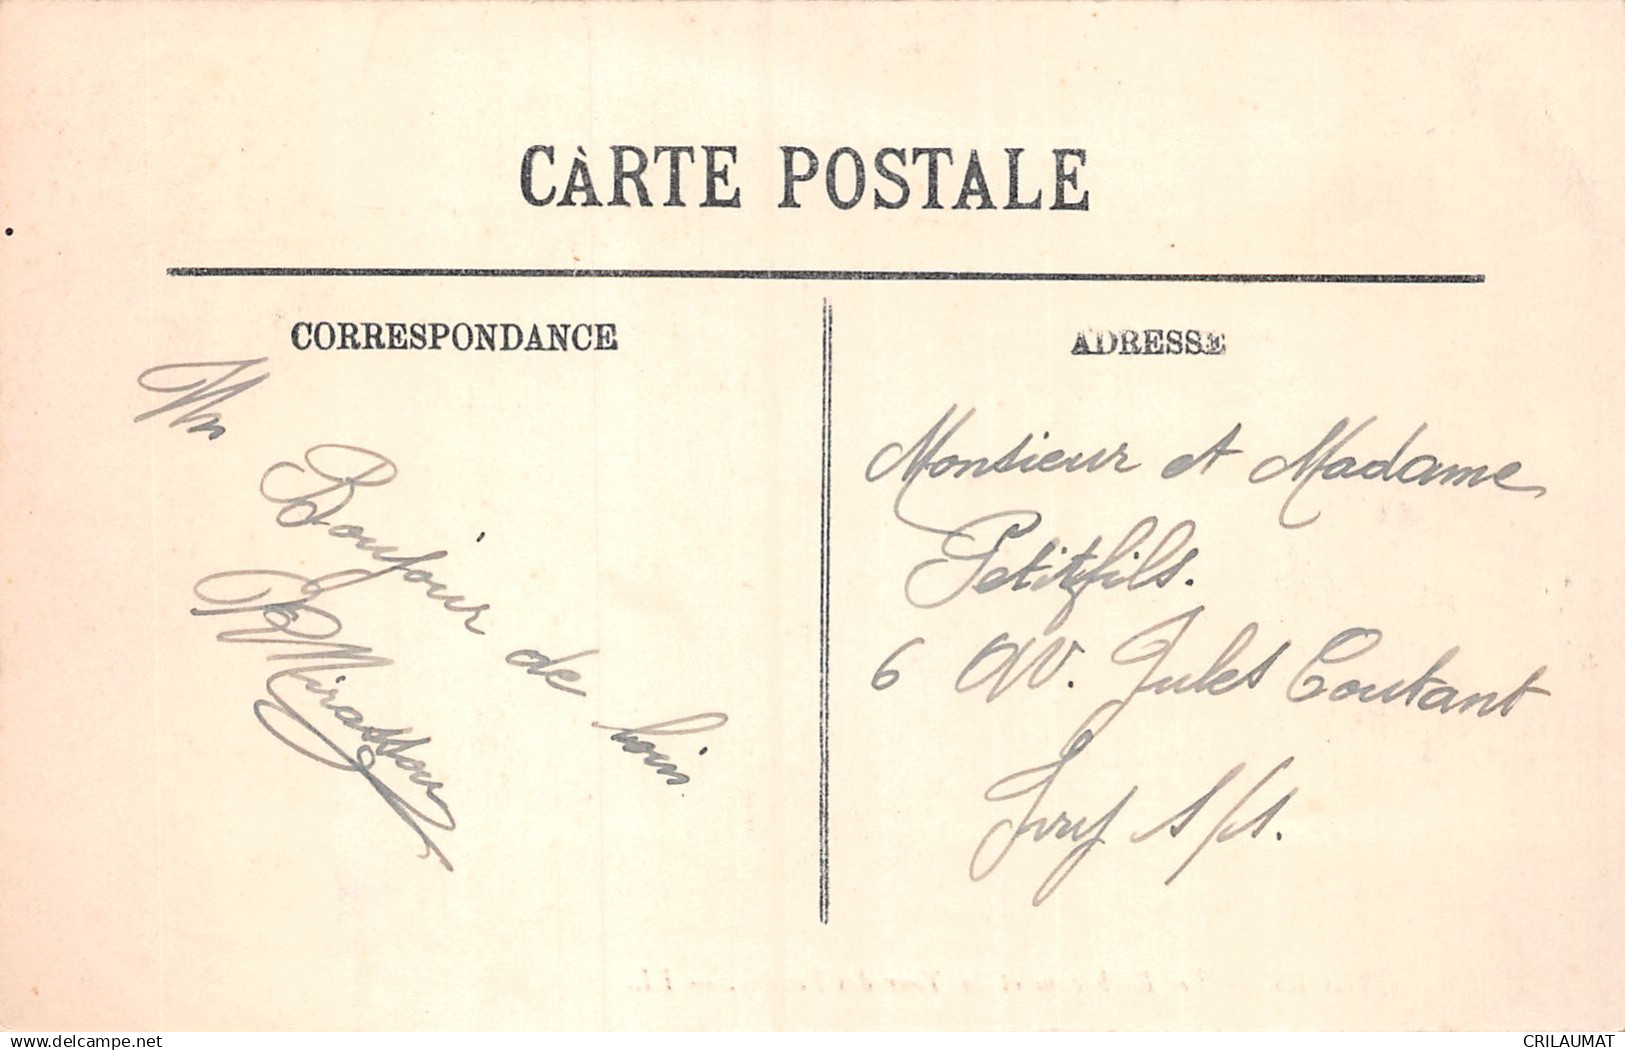 CARTE POSTALE
CORRESPONDANCE
Bonjour de loin
ADRESSE
Monsieur et Madame
Petitfils.
6 av. Jules Coutant
Ivry s/s.
www.delcampe.net
CRILAUMAT